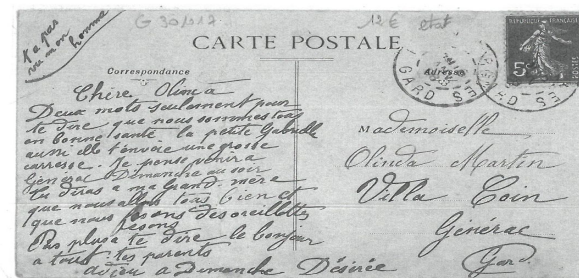 G 301017
12 € état
n'a pas
vu mon homme
CARTE POSTALE
RÉPUBLIQUE FRANÇAISE
5c
POSTES
GARD
GARD
Correspondance
Adresse
Chère Olinda
Deux mots seulement pour
te dire que nous sommes tous
en bonne santé la petite Gabrielle
aussi elle t'envoie une grosse
caresse. Je pense venir a
Générac Dimanche au soir
tu diras a ma Grand-mère
que nous allons tous bien et
que nous fesons des oreillettes
fesons
Pas plus a te dire le bonjour
a tous tes parents
adieu a Dimanche Désirée
Mademoiselle
Olinda Martin
Villa Coin
Générac
Gard.